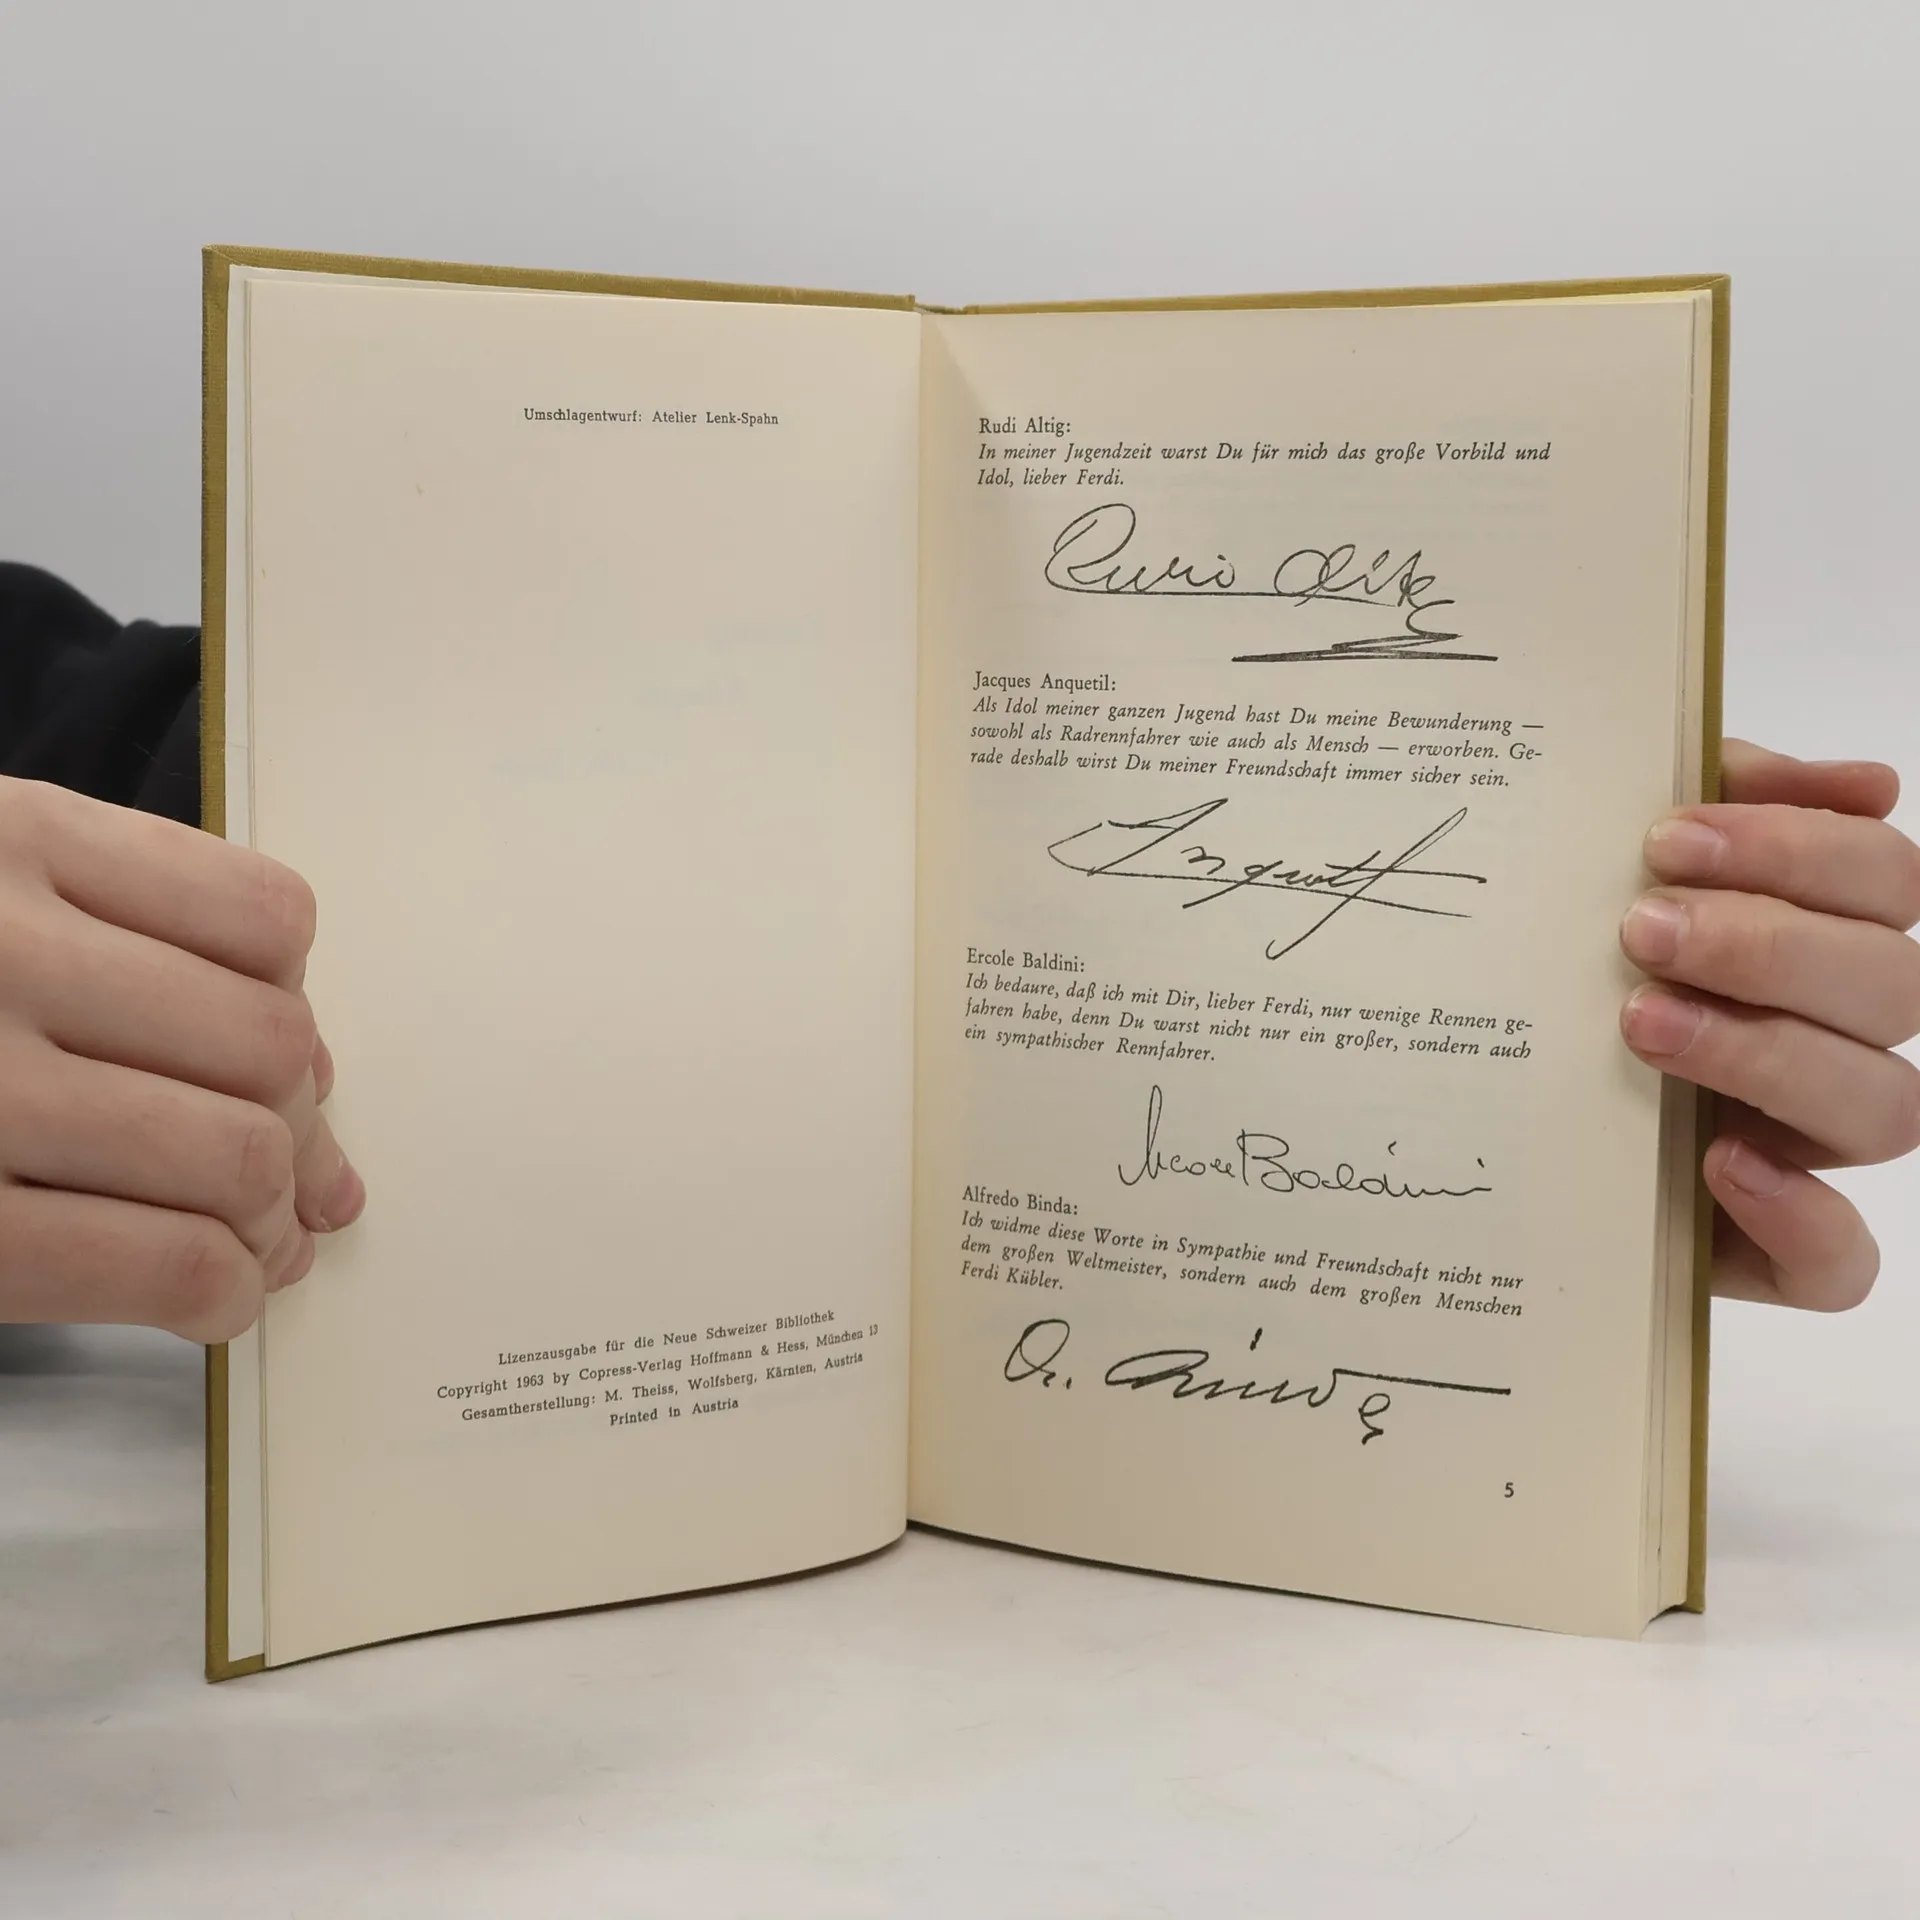 Umschlagentwurf: Atelier Lenk-Spahn
Lizenzausgabe für die Neue Schweizer Bibliothek
Copyright 1963 by Copress-Verlag Hoffmann & Hess, München 13
Gesamtherstellung: M. Theiss, Wolfsberg, Kärnten, Austria
Printed in Austria
Rudi Altig:
In meiner Jugendzeit warst Du für mich das große Vorbild und
Idol, lieber Ferdi.
Rudi Altig
Jacques Anquetil:
Als Idol meiner ganzen Jugend hast Du meine Bewunderung —
sowohl als Radrennfahrer wie auch als Mensch — erworben. Ge-
rade deshalb wirst Du meiner Freundschaft immer sicher sein.
Anquetil
Ercole Baldini:
Ich bedaure, daß ich mit Dir, lieber Ferdi, nur wenige Rennen ge-
fahren habe, denn Du warst nicht nur ein großer, sondern auch
ein sympathischer Rennfahrer.
Ercole Baldini
Alfredo Binda:
Ich widme diese Worte in Sympathie und Freundschaft nicht nur
dem großen Weltmeister, sondern auch dem großen Menschen
Ferdi Kübler.
5